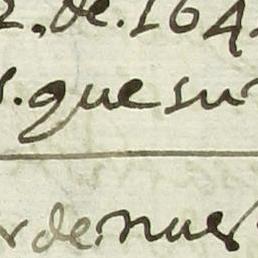 2. de. 164
s. que su
r de. nues